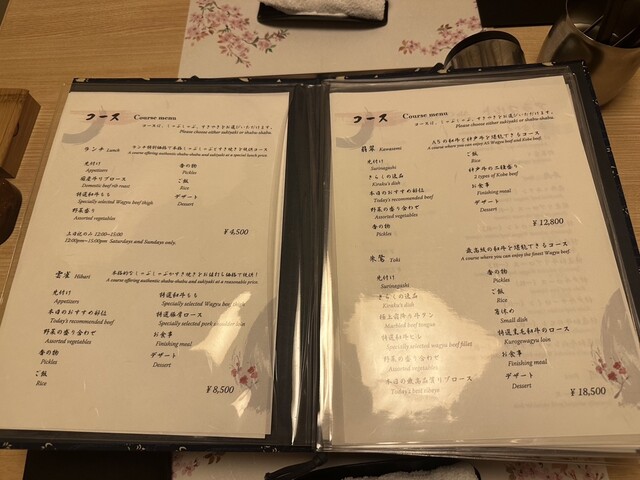 コース Course menu
コースは、しゃぶしゃぶ、すきやきをお選びいただけます。
Please choose either sukiyaki or shabu-shabu.
ランチ Lunch
ランチ特別価格で本格しゃぶしゃぶとすき焼きが味わえるコース
A course offering authentic shabu-shabu and sukiyaki at a special lunch price.
先付け
Appetizers
国産牛リブロース
Domestic beef rib roast
特選和牛もも
Specially selected Wagyu beef thigh
野菜盛り
Assorted vegetables
香の物
Pickles
ご飯
Rice
デザート
Dessert
土日祝のみ 12:00~15:00
12:00pm~15:00pm Saturdays and Sundays only.
¥4,500
雲雀 Hibari
本格的なしゃぶしゃぶやすき焼きをお値打ち価格で提供！
A course offering authentic shabu-shabu and sukiyaki at a reasonable price.
先付け
Appetizers
本日のおすすめ牛
Today's recommended beef
野菜の盛り合わせ
Assorted vegetables
香の物
Pickles
ご飯
Rice
特選和牛もも
Specially selected Wagyu beef
特選豚肩ロース
Specially selected pork shoulder loin
お食事
Finishing meal
デザート
Dessert
¥8,500
コース Course menu
コースは、しゃぶしゃぶ、すきやきをお選びいただけます。
Please choose either sukiyaki or shabu-shabu.
翡翠 Kawasemi
A5の和牛と神戸牛を堪能できるコース
A course where you can enjoy A5 Wagyu beef and Kobe beef.
先付け
Surinagashi
きらくの逸品
Kiraku's dish
本日のおすすめ前菜
Today's recommended beef
野菜の盛り合わせ
Assorted vegetables
香の物
Pickles
ご飯
Rice
神戸牛の二種盛り
2 types of Kobe beef
お食事
Finishing meal
デザート
Dessert
¥12,800
朱鷺 Toki
最高級の和牛を堪能できるコース
A course where you can enjoy the finest Wagyu beef
先付け
Surinagashi
きらくの逸品
Kiraku's dish
極上霜降り牛タン
Marbled beef tongue
特選和牛ヒレ
Specially selected wagyu beef fillet
野菜の盛り合わせ
Assorted vegetables
本日の最高品質リブロース
Today's best ribeye
香の物
Pickles
ご飯
Rice
箸休め
Small dish
特選黒毛和牛のロース
Kurogewagyu loin
お食事
Finishing meal
デザート
Dessert
¥18,500